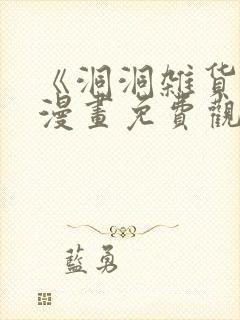 《洞洞雑货
漫畫免費觀
藍勇